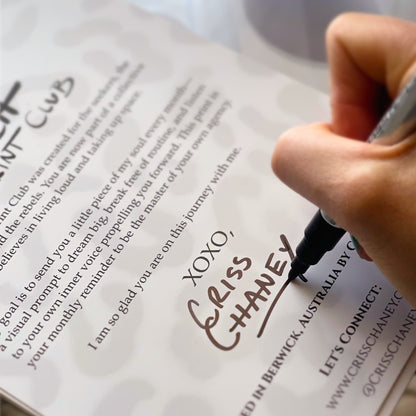 INT CLUB
int Club was created for the seekers, the
d the rebels. You are now part of a collective
believes in living loud and taking up space.
goal is to send you a little piece of my soul every month—
a visual prompt to dream big, break free of routine, and listen
to your own inner voice propelling you forward. This print is
your monthly reminder to be the master of your own agency.
I am so glad you are on this journey with me.
XOXO,
CRISS
CHANEY
ED IN BERWICK, AUSTRALIA BY C
LET'S CONNECT:
WWW.CRISSCHANEY.C
@CRISSCHANEY